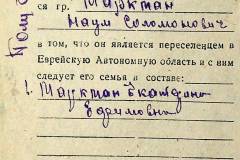 ся гр. Маркман
Наум Соломонович
в том, что он является переселенцем в
Еврейскую Автономную область и с ним
следует его семья в составе:
1. Маркман Екатерина
Ефимовна